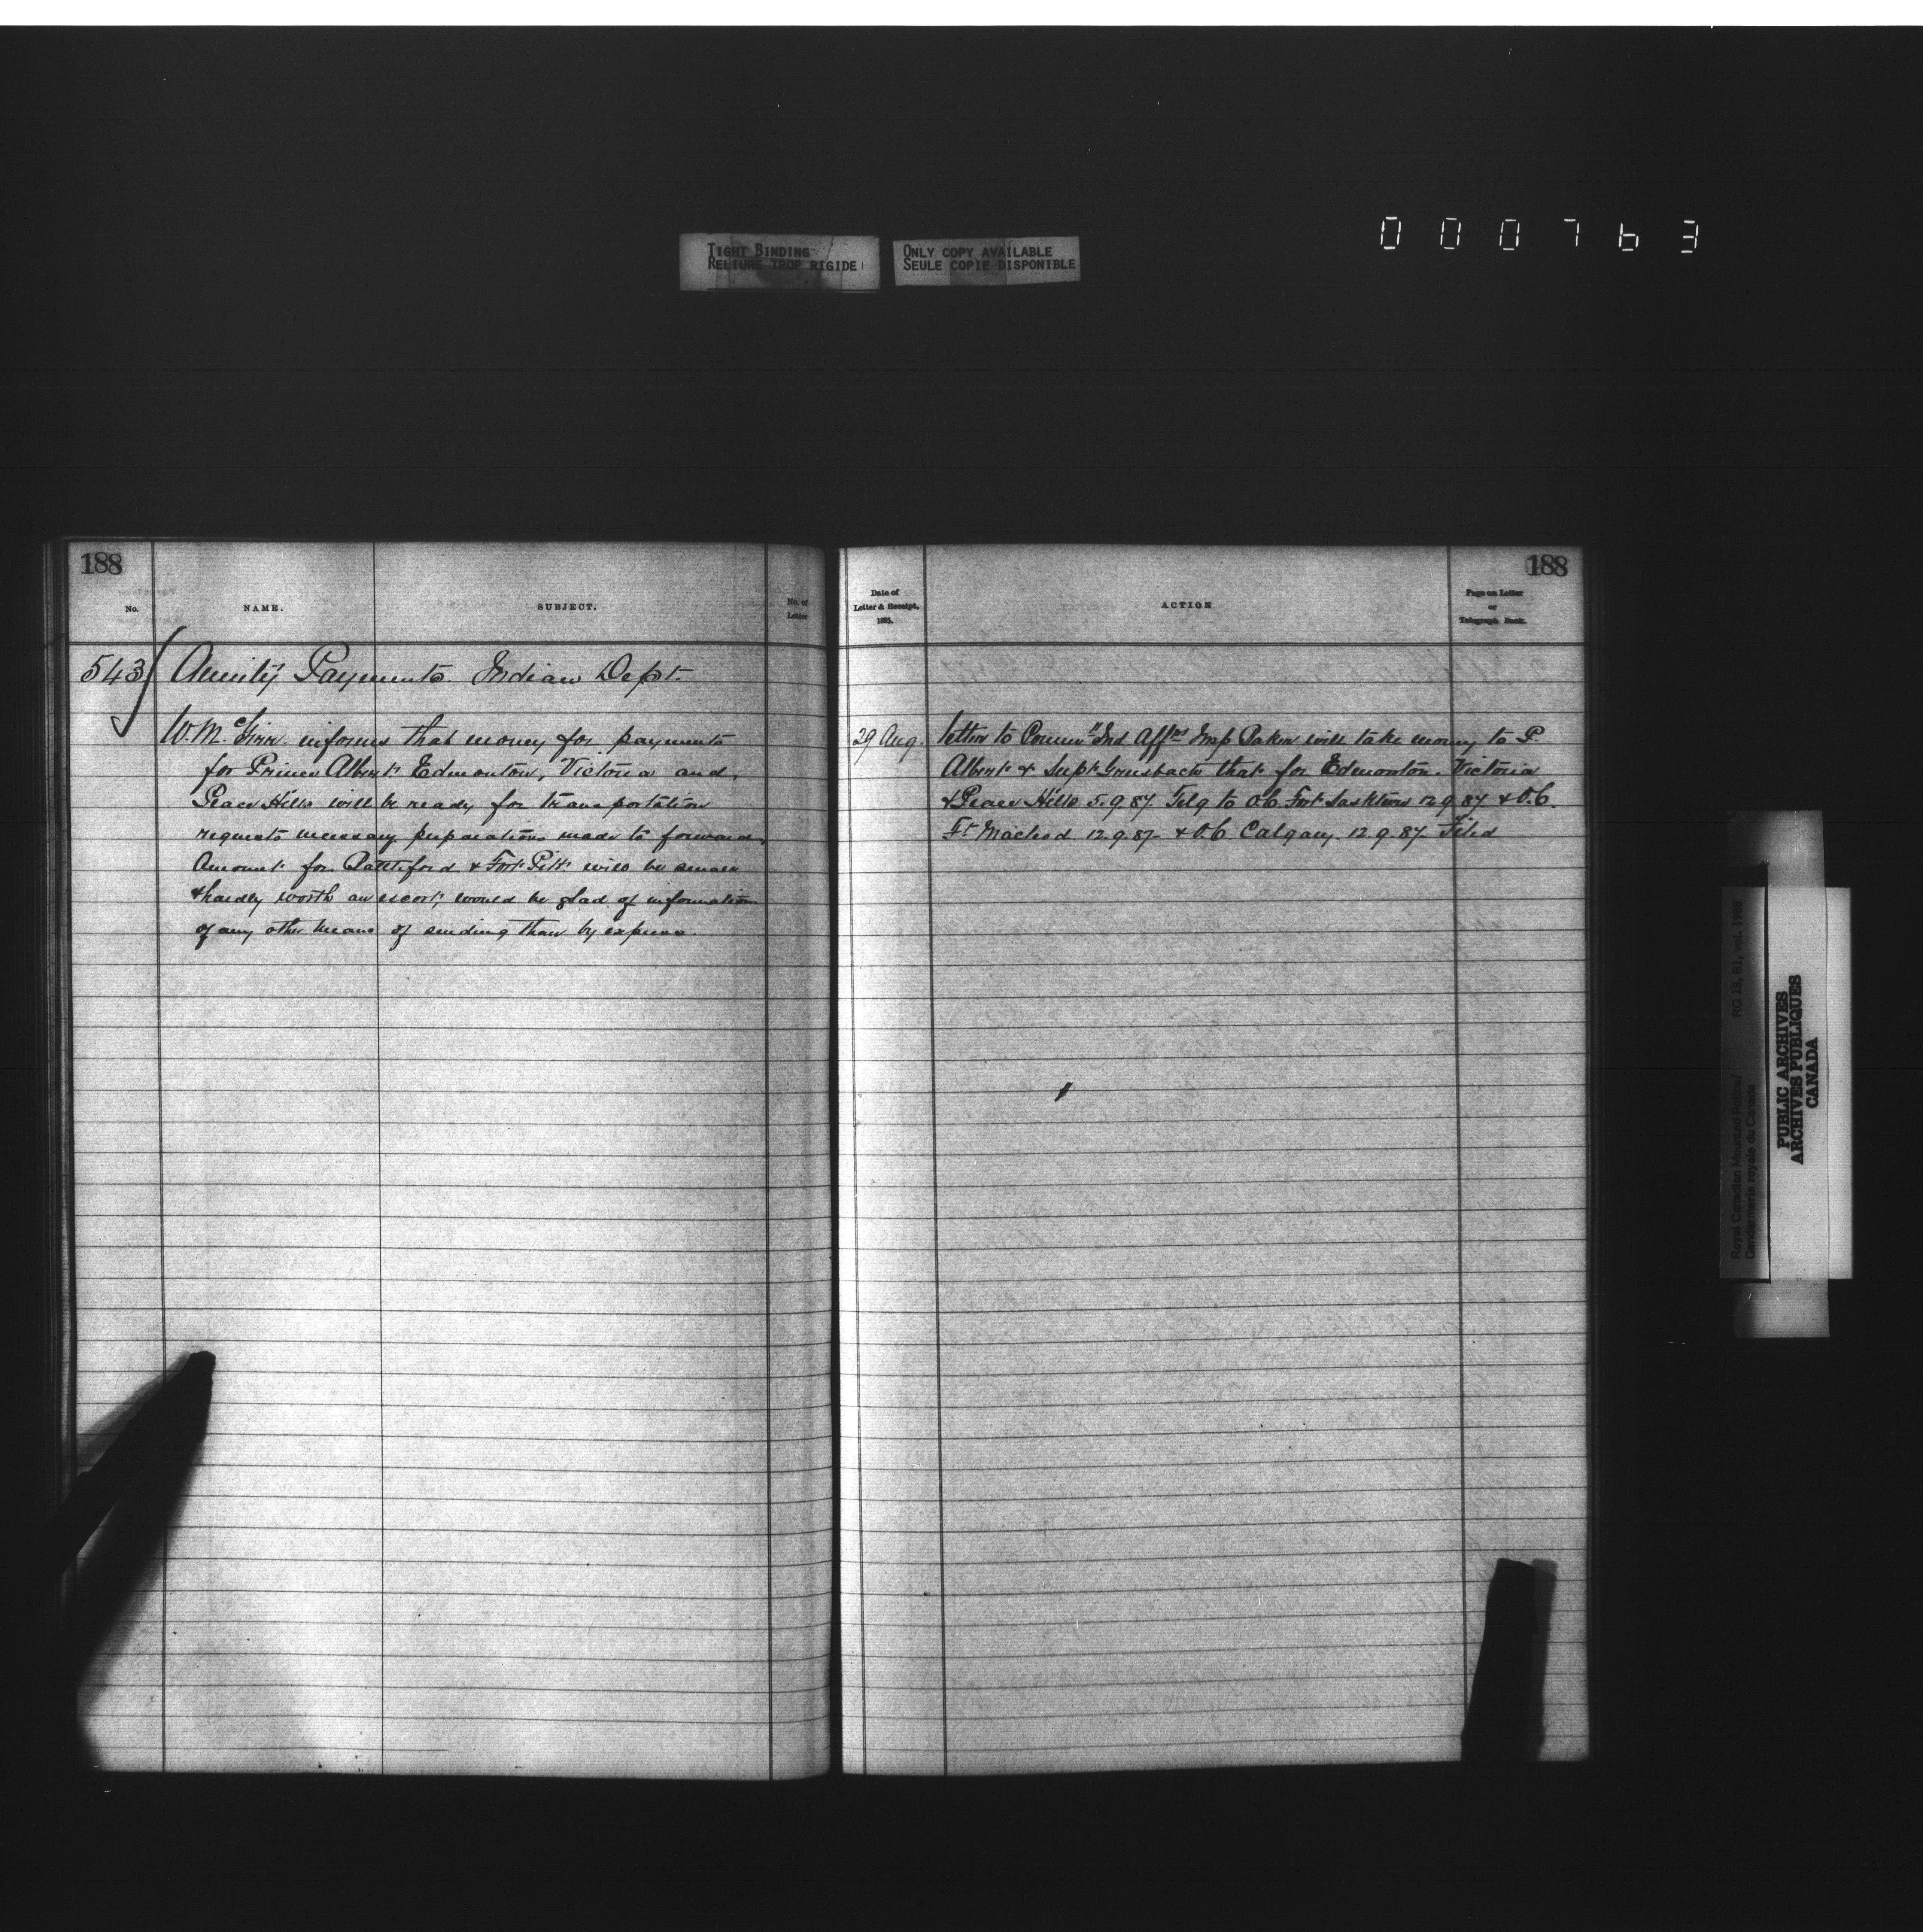 000763
TIGHT BINDING
RELIURE TROP RIGIDE
ONLY COPY AVAILABLE
SEULE COPIE DISPONIBLE
188
No.
NAME.
SUBJECT.
No. of
Letter
543
Anuity Payments. Indian Dept.
W. McGirr. informs that money for payments
for Prince Albert Edmonton, Victoria and
Peace Hills will be ready for transportation
requests necessary preparations made to forward,
Amount for Battleford & Fort Pitt will be small
& hardly worth an escort, would be glad of information
of any other means of sending than by express.
188
Date of
Letter & Receipt,
1885.
ACTION
Page on Letter
or
Telegraph Book.
29 Aug.
letter to Commr Ind Affrs Insp Baker will take money to P.
Albert & Supt Griesbach that for Edmonton. Victoria
& Peace Hills 5.9.87. Telg to O.C. Fort Sasktwn 12.9.87 & O.C.
Ft Macleod 12.9.87- & O.C. Calgary. 12.9.87. Filed
Royal Canadian Mounted Police/
Gendarmerie royale du Canada
RG 18, B1, vol. 1988
PUBLIC ARCHIVES
ARCHIVES PUBLIQUES
CANADA